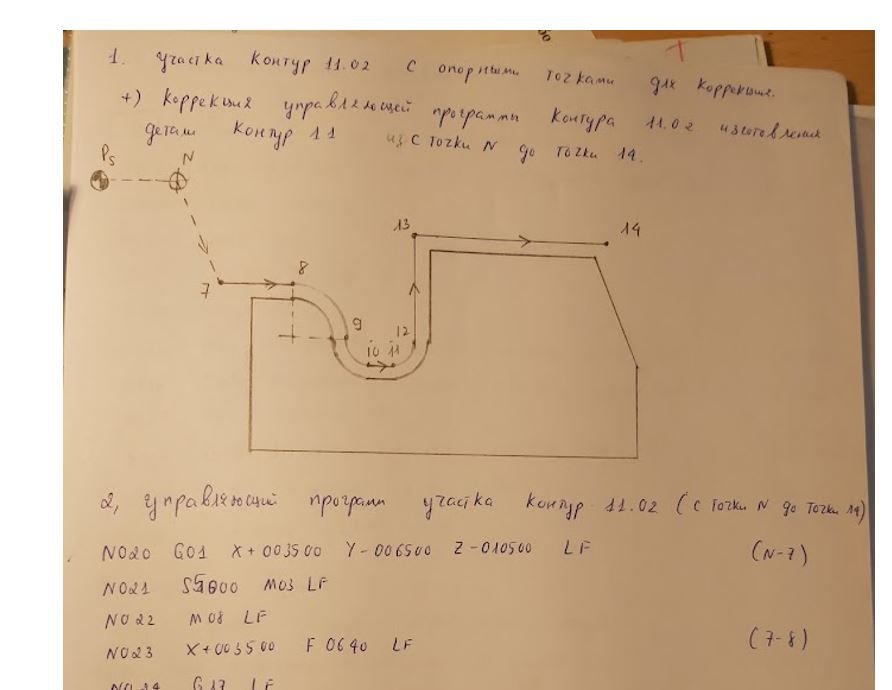 1. участка контур 11.02 с опорными точками для коррекция.
+) коррекция управляющей программы контура 11.02 изготовления
детали контур 11 из с точки N до точки 14.
Ps N
13 14
8
7
9 12
10 11
2, управляющий програми участка контур 11.02 (с точки N до точки 14)
N020 G01 X+003500 Y-006500 Z-010500 LF (N-7)
N021 S5000 M03 LF
N022 M08 LF
N023 X+003500 F0640 LF (7-8)
N024 G17 LF